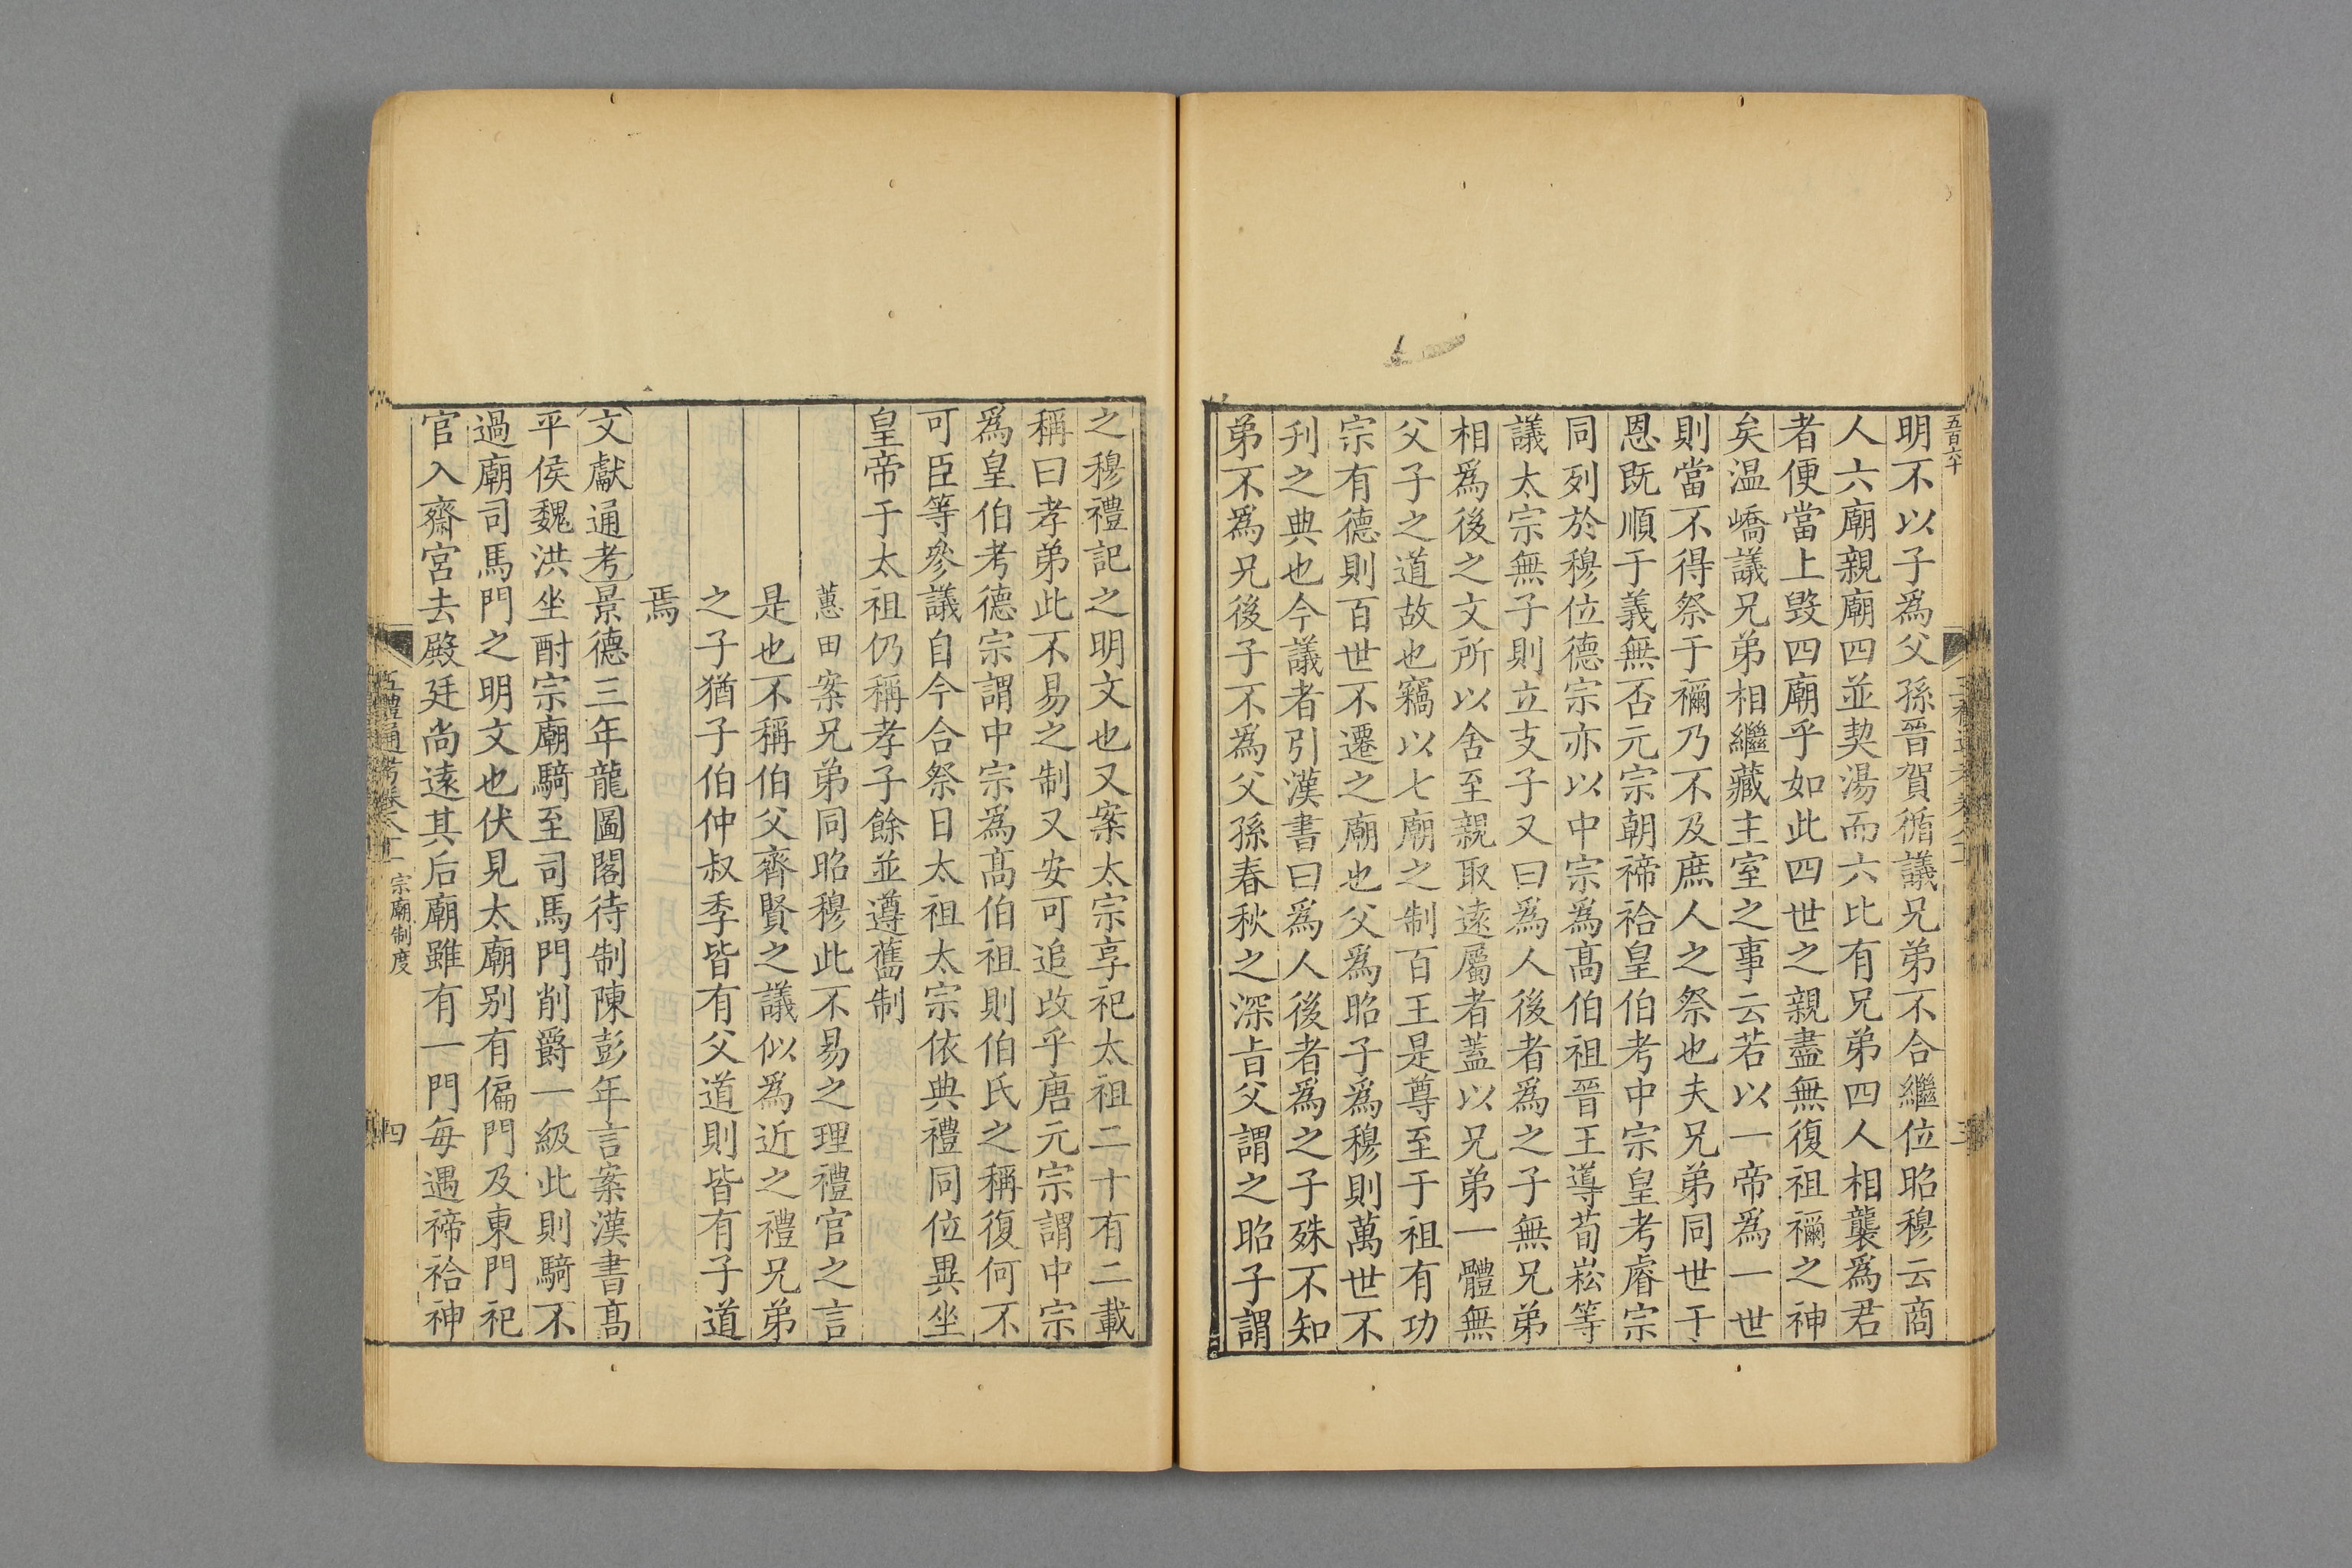 五百六十
明不以子爲父孫晉賀循議兄弟不合繼位昭穆云商
人六廟親廟四並契湯而六比有兄弟四人相襲爲君
者便當上毀四廟乎如此四世之親盡無復祖禰之神
矣温嶠議兄弟相繼藏主室之事云若以一帝爲一世
則當不得祭于禰乃不及庶人之祭也夫兄弟同世于
恩既順于義無否元宗朝禘祫皇伯考中宗皇考睿宗
同列於穆位德宗亦以中宗爲髙伯祖晉王導荀崧等
議太宗無子則立支子又曰爲人後者爲之子無兄弟
相爲後之文所以舍至親取遠屬者蓋以兄弟一體無
父子之道故也竊以七廟之制百王是尊至于祖有功
宗有德則百世不遷之廟也父爲昭子爲穆則萬世不
刋之典也今議者引漢書曰爲人後者爲之子殊不知
弟不爲兄後子不爲父孫春秋之深旨父謂之昭子謂
之穆禮記之明文也又案太宗享祀太祖二十有二載
稱曰孝弟此不易之制又安可追改乎唐元宗謂中宗
爲皇伯考德宗謂中宗爲髙伯祖則伯氏之稱復何不
可臣等參議自今合祭日太祖太宗依典禮同位異坐
皇帝于太祖仍稱孝子餘並遵舊制
蕙田案兄弟同昭穆此不易之理禮官之言
是也不稱伯父齊賢之議似爲近之禮兄弟
之子猶子伯仲叔季皆有父道則皆有子道
焉
文獻通考景德三年龍圖閣待制陳彭年言案漢書髙
平侯魏洪坐酎宗廟騎至司馬門削爵一級此則騎不
過廟司馬門之明文也伏見太廟别有偏門及東門祀
官入齋宮去殿廷尚遠其后廟雖有一門每遇禘祫神
五禮通考卷八十二 宗廟制度 四